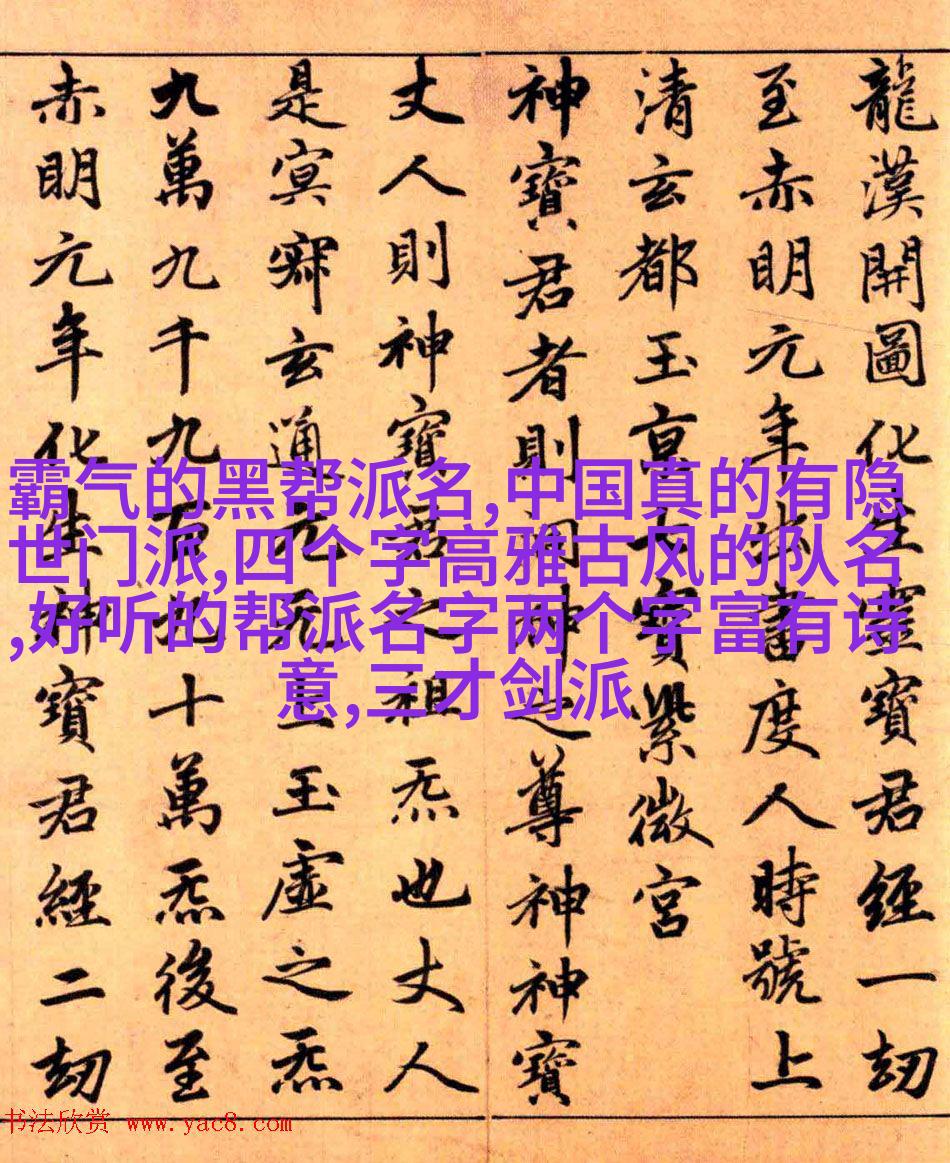 龍漢開圖化生靈寶君經一劫
至赤明元年出書度人時號上
清玄都玉京七寶紫微宮
神寶君者則洞神之尊神神寶
丈人則神寶君之祖炁也丈人
是冥寂玄通元无上玉虛之炁
九萬九千九百九十萬炁後至
赤明元年化生神寶君經二劫
霸气的黑帮派名,中国真的有隐
世门派,四个字高雅古风的队名
,好听的帮派名字两个字富有诗
意,三才剑派
书法欣赏 www.yac8.com